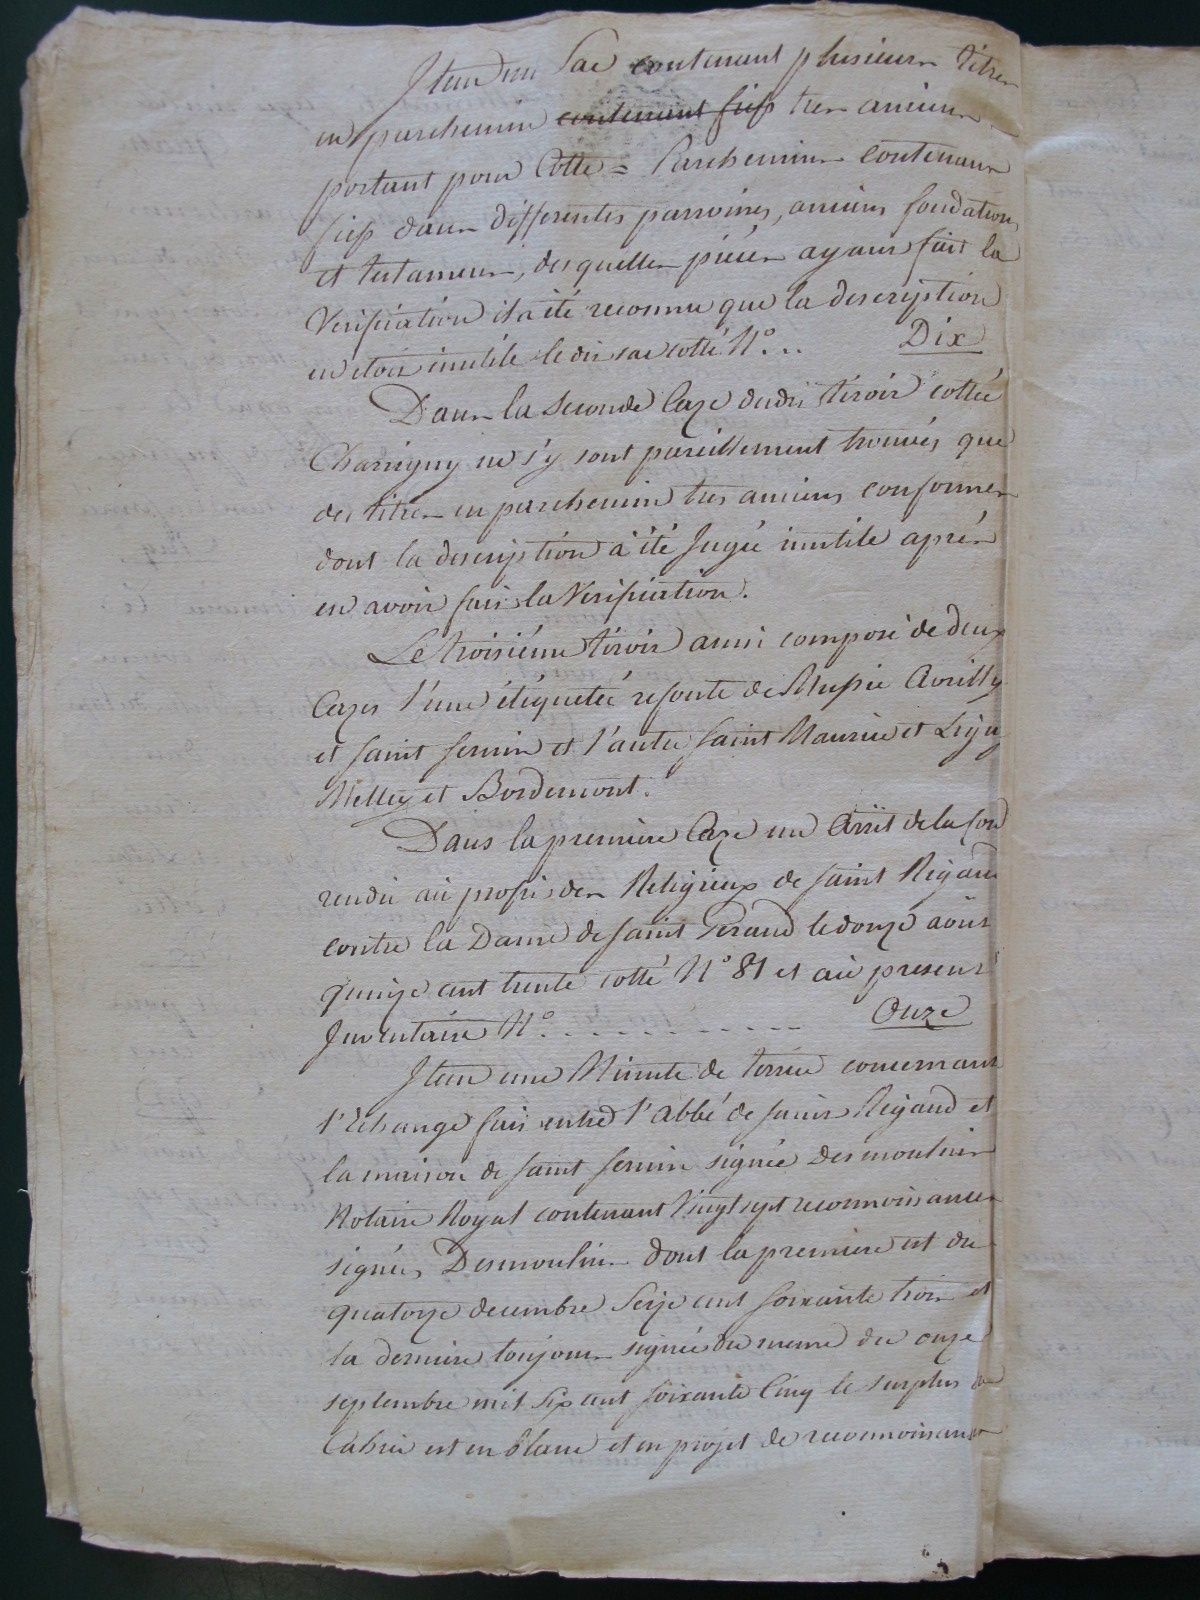 Item un Sac contenant plusieurs titres
en parchemin contenant fiefs tres anciens
portant pour Cotte = Parchemins contenant
fiefs dans differentes parroines, anciens fondations
et testamens, desquelles pièces ayans fait la
Verification il a été reconnu que la description
en etoit inutile le dit sac cotté N° .. Dix
Dans la seconde Caze dudit tiroir cottée
Charrigny ne s'y sont pareillement trouvés que
des titres en parchemin tres anciens conformes
dont la description a été Jugée inutile aprés
en avoir fait la Verification.
Le troisiéme tiroir aussi composé de deux
Cazes l'une étiquetée refonte de Avrilly
et saint fermin et l'autre Saint Maurice et
Melley et Bordemont.
Dans la premiere Caze un Arrêt de la Cour
rendu au profit des Religieux de saint Rigaud
contre la Dame de saint Geraud le douze août
quinze cent trente cotté N° 81 et au present
Inventaire N° . . . . . . . . . . . Onze
Item une Minute de terrier concernant
l'Echange fait entre l'abbé de saint Rigaud et
la maison de saint fermin signée Desmoulins
Notaire Royal contenant Vingt sept reconnoissances
signées Desmoulins dont la premiere est du
quatorze decembre Seize cent soixante trois et
la derniere toujours signée du meme du onze
septembre mil six cent soixante Cinq le surplus du
Cahier est en blanc et en projet de reconnoissances